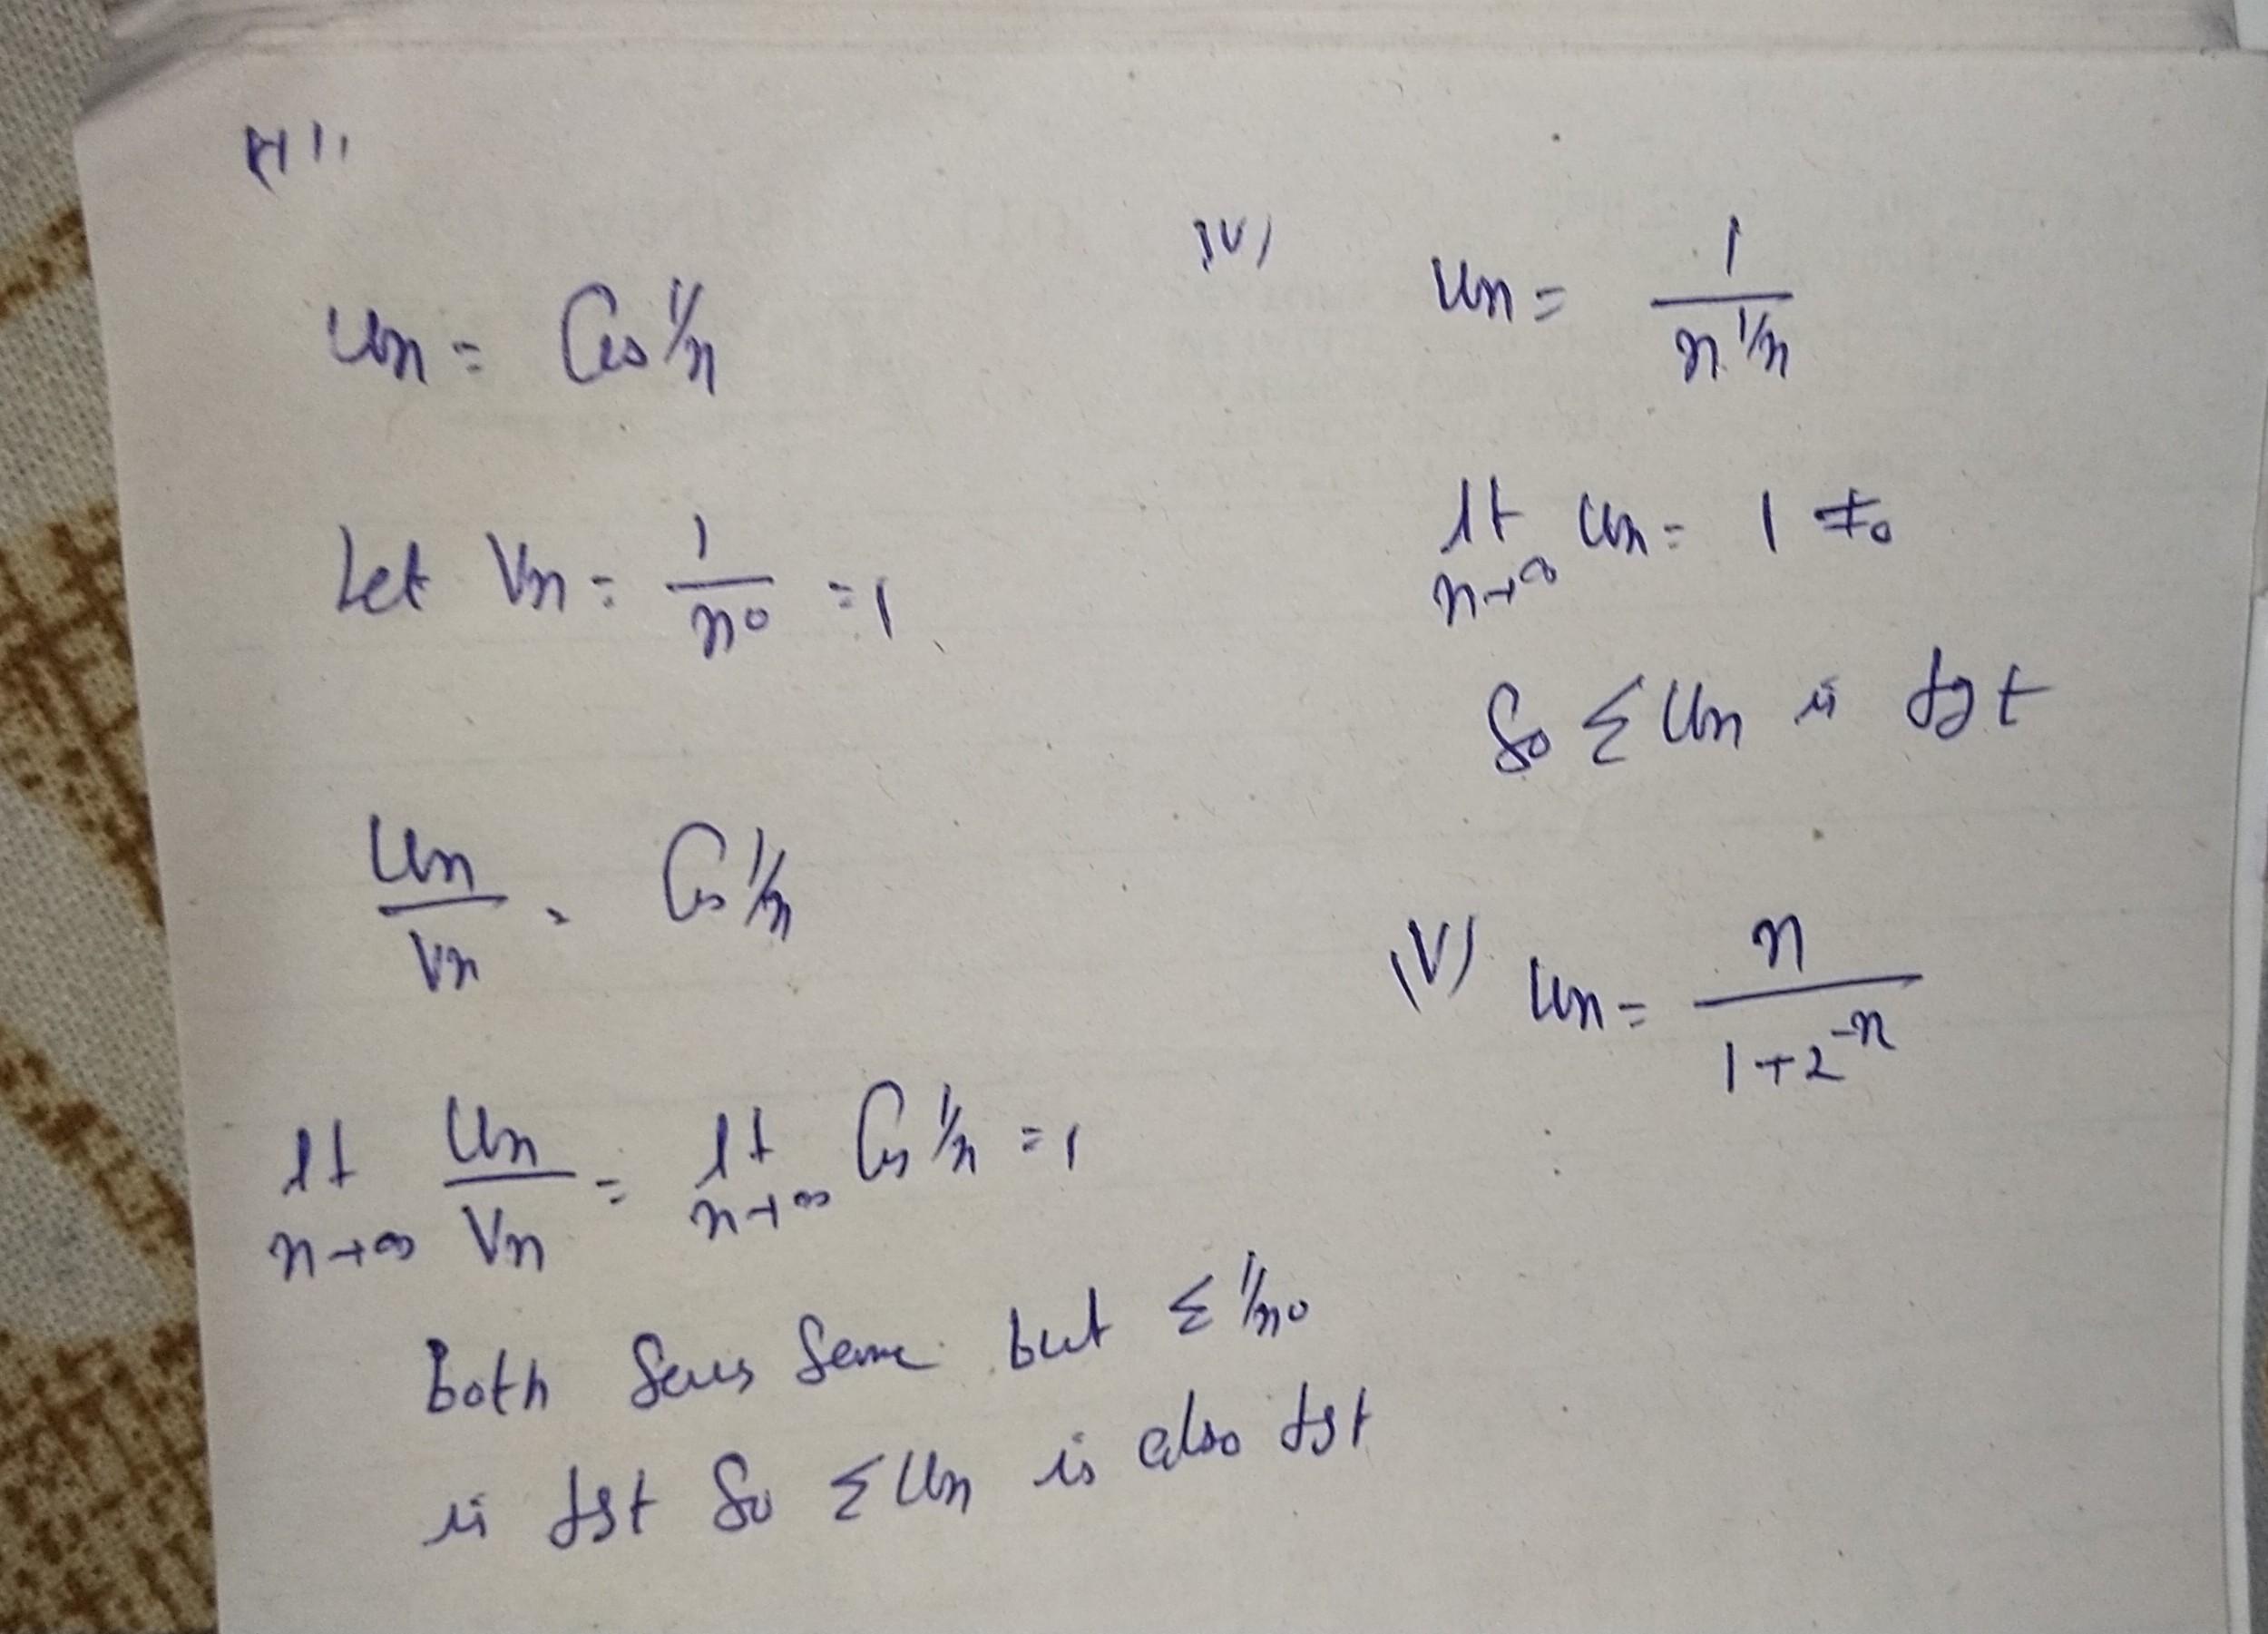 Un = Cos 1/n
Let Vn = 1/n⁰ = 1
Un/Vn = Cos 1/n
lt n→∞ Un/Vn = lt n→∞ Cos 1/n = 1
Both Series Same but Σ 1/n⁰
is dgt So Σ Un is also dgt
(iv) Un = 1/n^(1/n)
lt n→∞ Un = 1 ≠ 0
So Σ Un is dgt
(V) Un = n/(1+2^(-n))